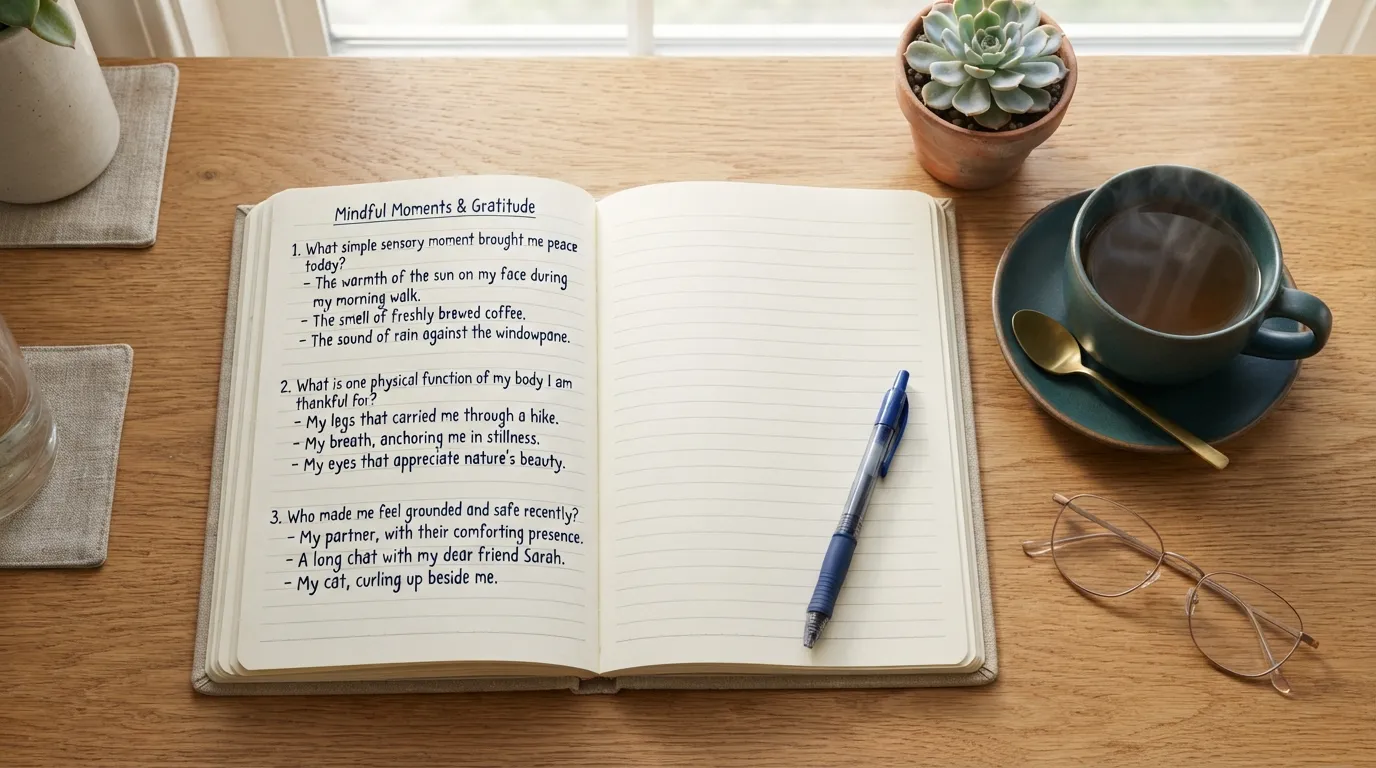 Mindful Moments & Gratitude
1. What simple sensory moment brought me peace
today?
- The warmth of the sun on my face during
my morning walk.
- The smell of freshly brewed coffee.
- The sound of rain against the windowpane.
2. What is one physical function of my body I am
thankful for?
- My legs that carried me through a hike.
- My breath, anchoring me in stillness.
- My eyes that appreciate nature's beauty.
3. Who made me feel grounded and safe recently?
- My partner, with their comforting presence.
- A long chat with my dear friend Sarah.
- My cat, curling up beside me.